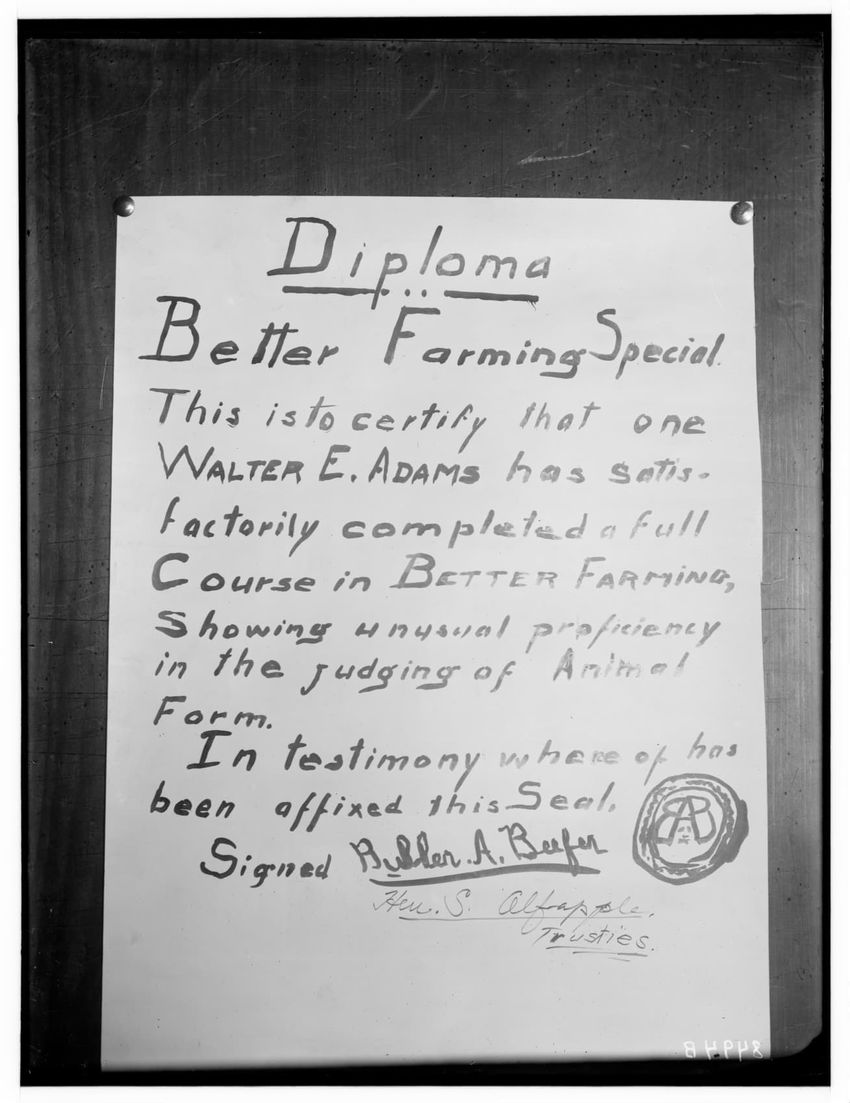 Diploma
Better Farming Special.
This is to certify that one
WALTER E. ADAMS has satis-
factorily completed a full
Course in BETTER FARMING,
Showing unusual proficiency
in the judging of Animal
Form.
In testimony where of has
been affixed this Seal.
Signed A. Beefer
Hen. S. Alfapple.
Trusties.
B49948